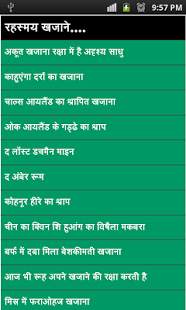 9:57 PM
रहस्मय खजाने....
अकूत खजाना रक्षा में है अदृश्य साधु
काहुएंगा दर्रा का खजाना
चार्ल्स आयलैंड का श्रापित खजाना
ओक आयलैंड के गड्ढे का श्राप
द लॉस्ट डचमैन माइन
द अंबेर रूम
कोहनूर हीरे का श्राप
चीन का क्विन शि हुआंग का विषैला मकबरा
बर्फ में दबा मिला बेशकीमती खजाना
आज भी रूह अपने खजाने की रक्षा करती है
मिस्र में फराओहज खजाना